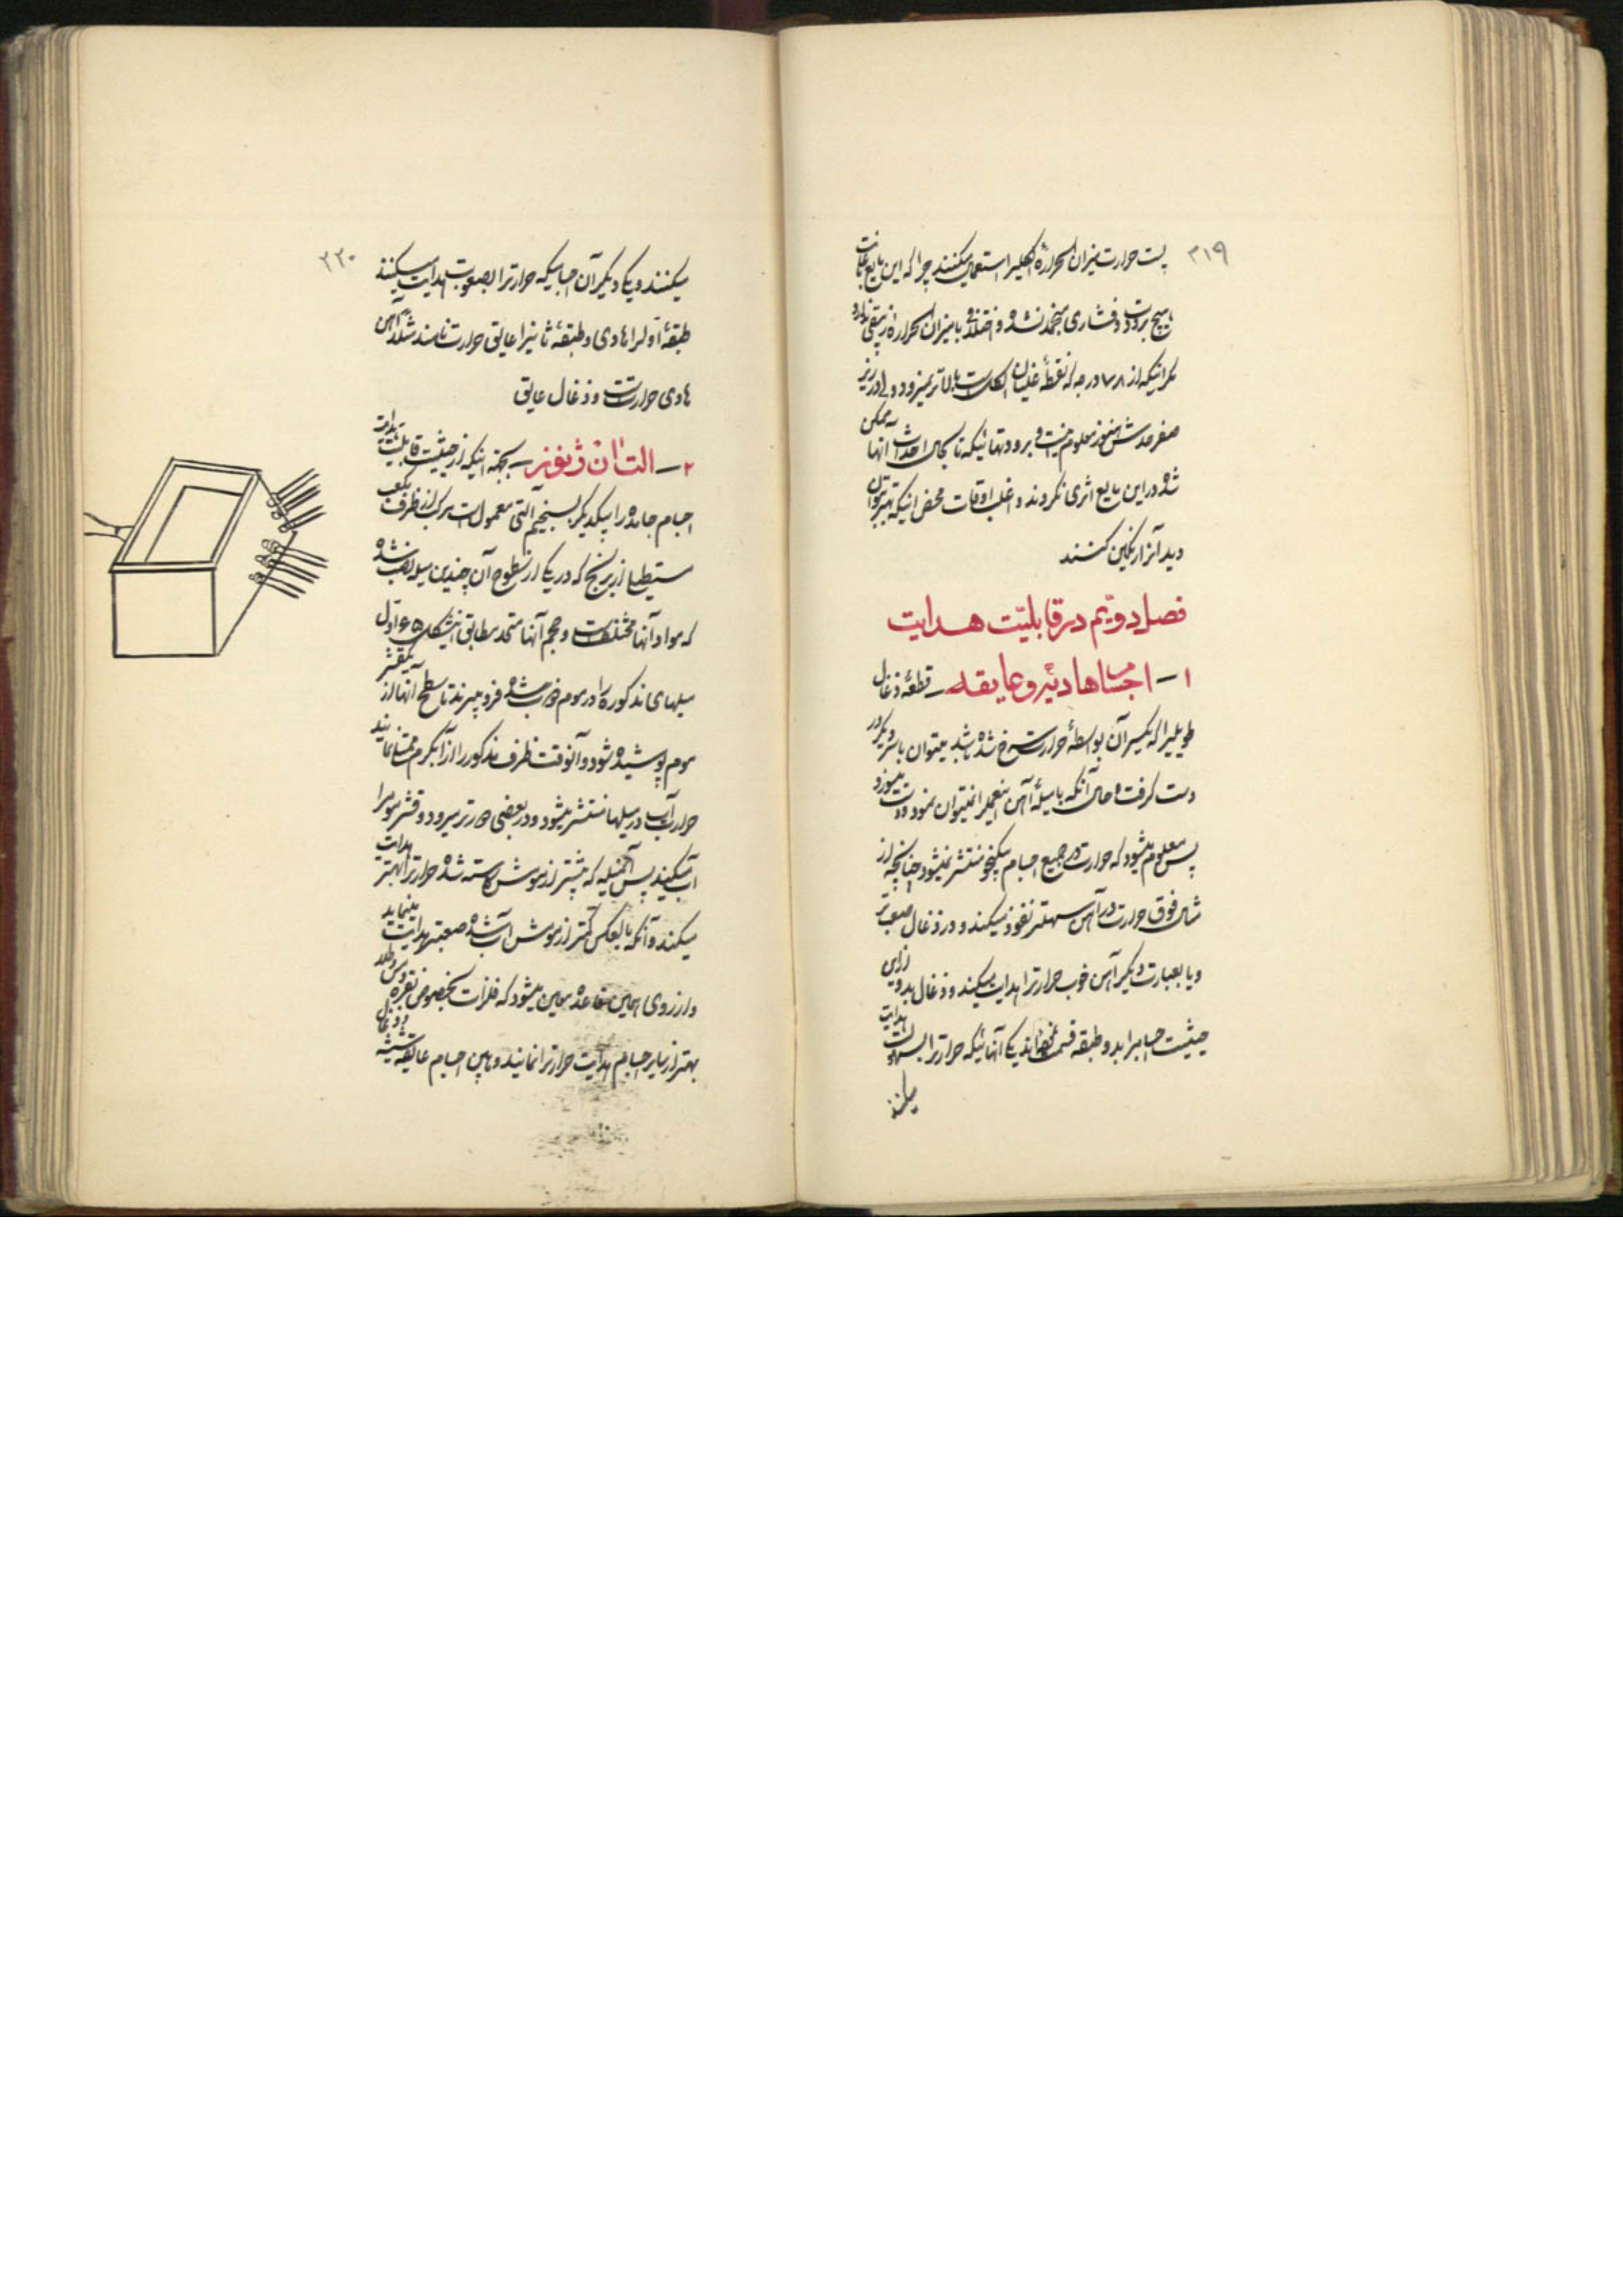 ۲۱۹
پست حرارت میزان الحرارهٔ الکلیرا استعمال میکنند چرا که این مایع تا بحال
بهیچ برودت و فشاری منجمد نشده و اختلافی با میزان الحرارهٔ زیبقی ندارد
مگر اینکه از ۷۸ درجه که نقطهٔ غلیان الکل است بالاتر نمیرود ولی در زیر
صفر حدش هنوز معلوم نیست و برودتهائیکه تا بحال احداث آنها ممکن
شده در این مایع اثری نکردند و اغلب اوقات محض اینکه بهتر بتوان
دید آنرا رنگین کنند
فصل دویم در قابلیّت هدایت
۱ – اجسام هادیه و عایقه – قطعهٔ ذغال
طویلیرا که یکسر آن بواسطهٔ حرارت سرخ شده باشد میتوان با سر دیگر در
دست گرفت و حال آنکه با میلهٔ آهن اینعمل را نمیتوان نمود و دست میسوزد
پس معلوم میشود که حرارت در جمیع اجسام بیکنحو منتشر نمیشود چنانچه از
مثال فوق حرارت در آهن سهلتر نفوذ میکند و در ذغال صعبتر
و یا بعبارت دیگر آهن خوب حرارترا هدایت میکند و ذغال بد و از این
حیثیت اجسام را بدو طبقه قسمت نموده‌اند یکی آنهائیکه حرارترا بسهولت هدایت
میکنند
۲۲۰
میکنند و یکی دیگر آن اجسامیکه حرارترا بصعوبت هدایت میکنند
طبقهٔ اولرا هادی و طبقهٔ ثانیرا عایق حرارت نامند مثلاً آهن
هادی حرارتست و ذغال عایق
۲ – الت انژنهوز – بجهة اینکه از حیثیت قابلیت هدایت
اجسام جامده را بیکدیگر بسنجیم آلتی معمول است مرکب از ظرف مکعب
مستطیلی از برنج که در یکی از سطوح آن چندین میله نصب شده
که مواد آنها مختلف است و حجم آنها متحد مطابق اینشکل ۶۵ اول
میلهای مذکوره را در موم ذوب شده فرو میبرند تا سطح آنها از یکقشر
موم پوشیده شود و آنوقت ظرف مذکور را از آبگرم ممتلی نمایند
حرارت آب در میلها منتشر میشود و در بعضی دورتر میرود و قشر موم را
آب میکند پس آنمیله که بیشتر از مومش کاسته شده حرارترا بهتر هدایت
میکند و آنکه بالعکس کمتر از مومش آب شده صعبتر هدایت مینماید
و از روی همین قاعده معین میشود که فلزات بخصوص نقره و مس و طلا
بهتر از سایر اجسام هدایت حرارترا نمایند و مابین اجسام عایقه شیشه و ذغال